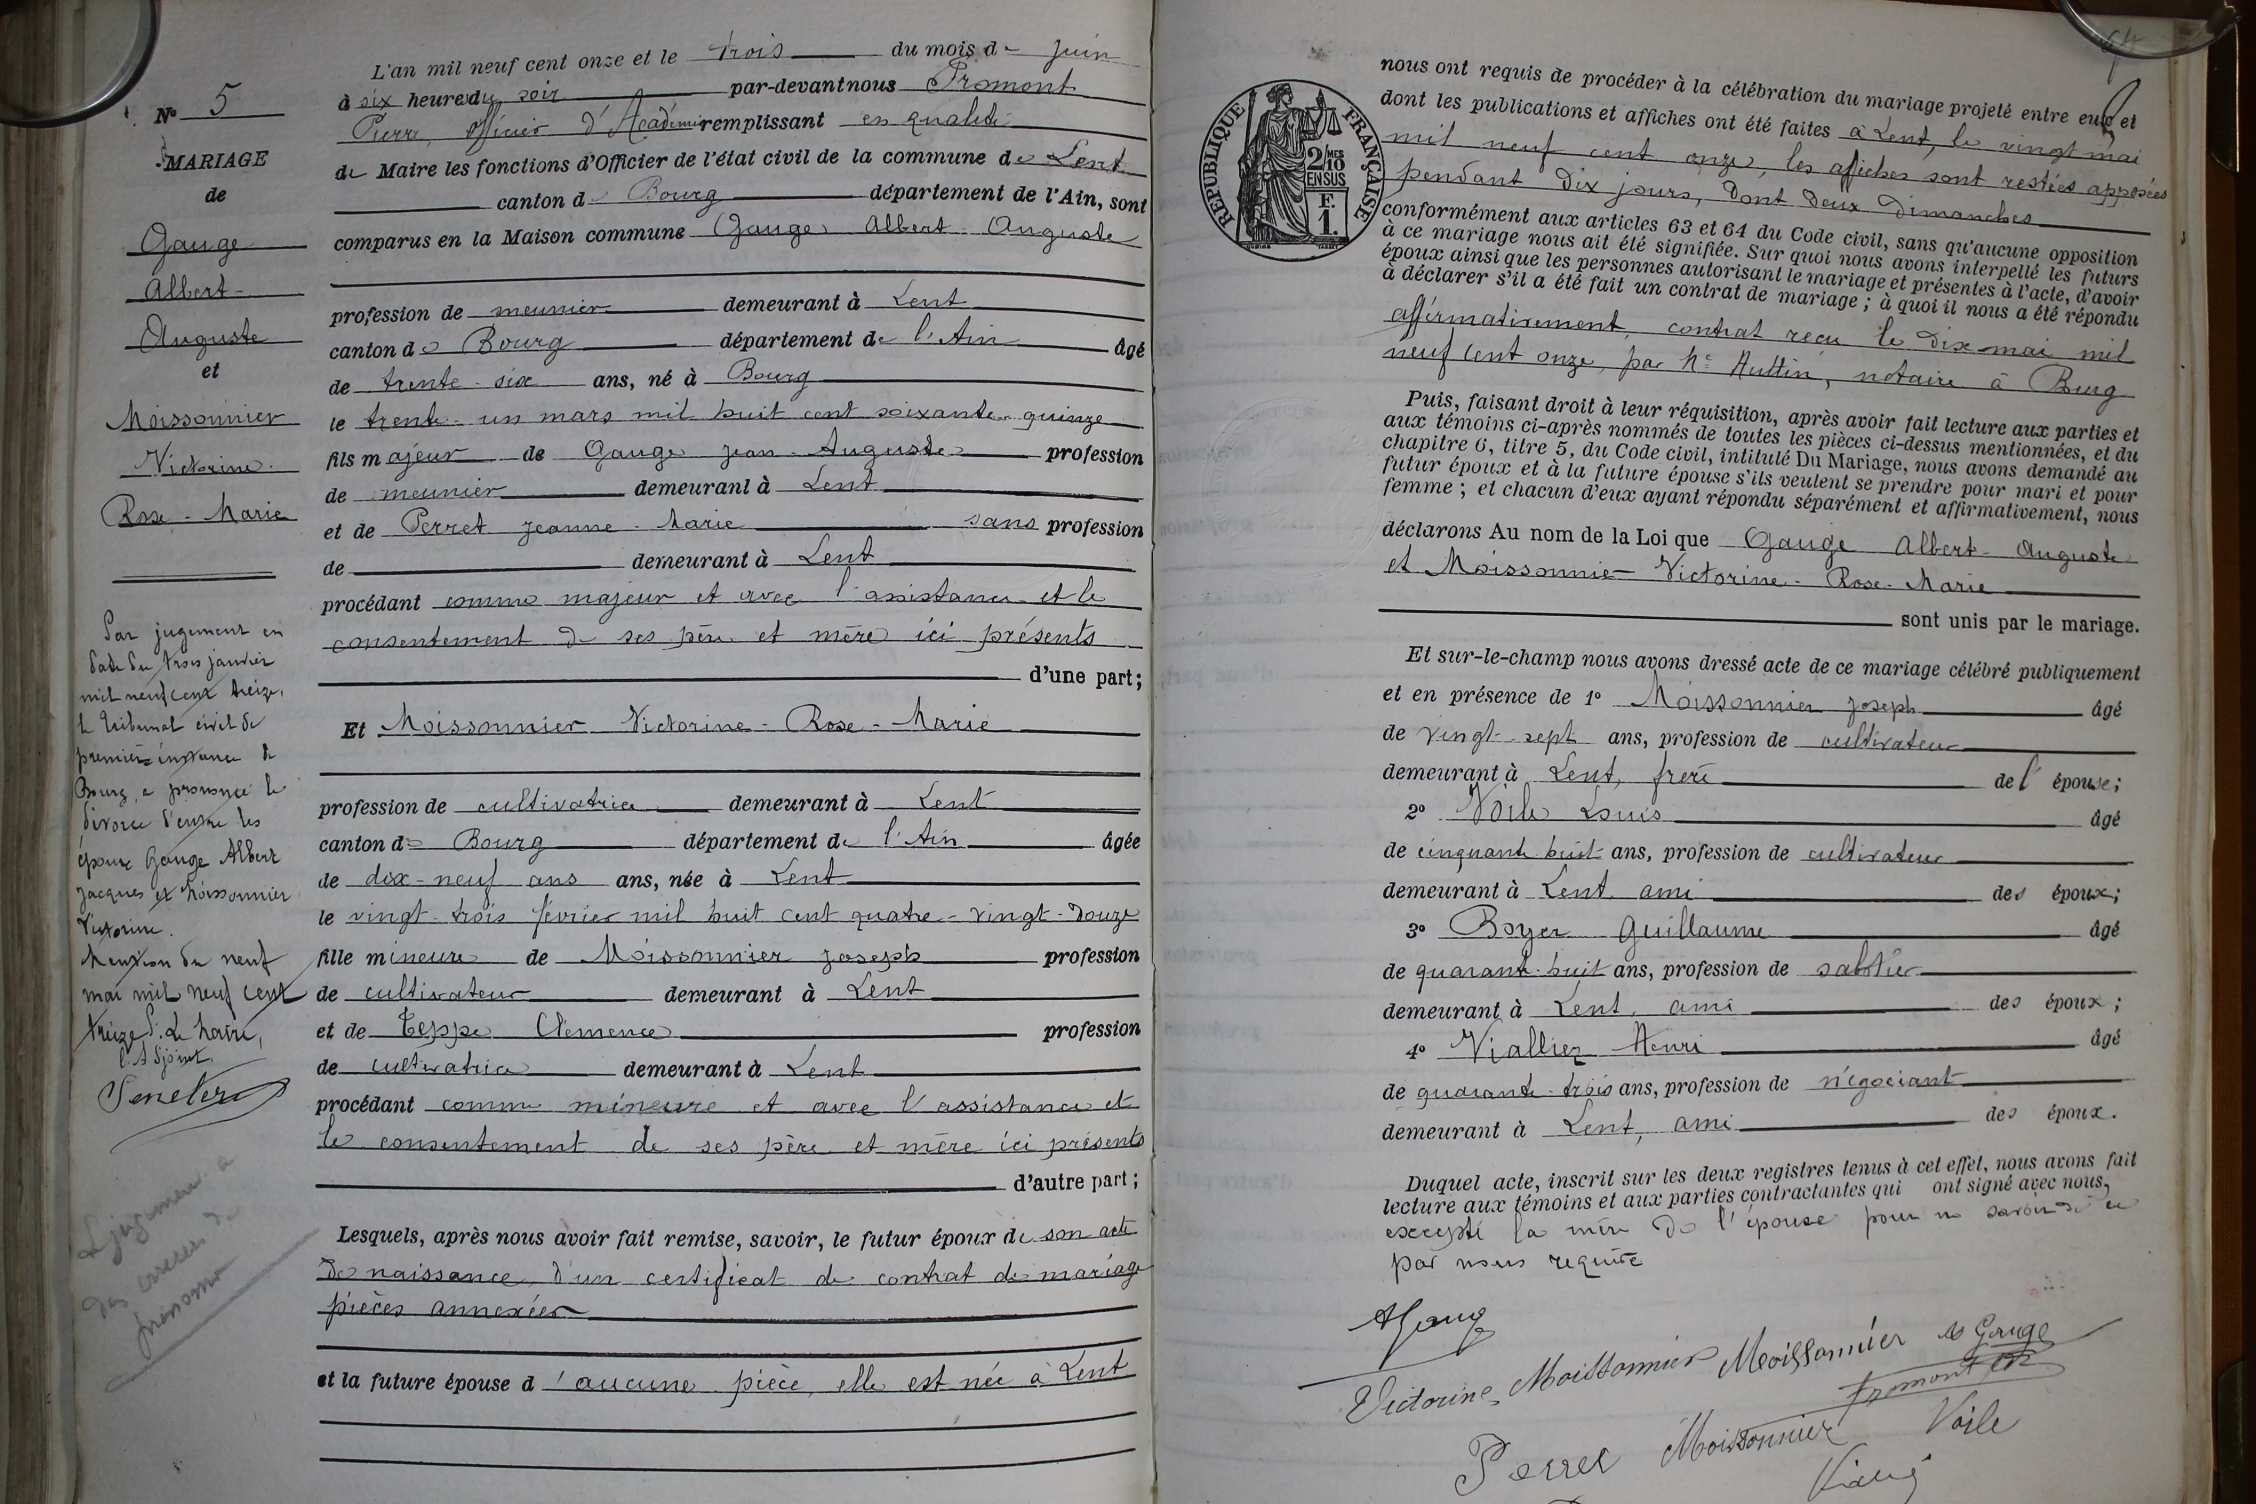 N° 5
MARIAGE
de
Gauge
Albert-
Auguste
et
Moissonnier
Victorine-
Rose-Marie
Par jugement en
date du trois janvier
mil neuf cent treize,
le tribunal civil de
première instance de
Bourg, a prononcé le
divorce d'entre les
époux Gauge Albert
Jacques et Moissonnier
Victorine.
Mention du neuf
mai mil neuf cent
treize P. Le Maire,
l'Adjoint,
Le jugement a
des erreurs de
prénoms
L'an mil neuf cent onze et le trois du mois de juin
à six heures du soir par-devant nous Promont
Pierre, officier d'Académie remplissant en qualité
de Maire les fonctions d'Officier de l'état civil de la commune de Lent
canton de Bourg département de l'Ain, sont
comparus en la Maison commune Gauge Albert-Auguste
profession de meunier demeurant à Lent
canton de Bourg département de l'Ain âgé
de trente-six ans, né à Bourg
le trente-un mars mil huit cent soixante-quinze
fils majeur de Gauge Jean-Auguste profession
de meunier demeurant à Lent
et de Perret Jeanne-Marie sans profession
de demeurant à Lent
procédant comme majeur et avec l'assistance et le
consentement de ses père et mère ici présents
d'une part;
Et Moissonnier Victorine-Rose-Marie
profession de cultivatrice demeurant à Lent
canton de Bourg département de l'Ain âgée
de dix-neuf ans ans, née à Lent
le vingt-trois février mil huit cent quatre-vingt-douze
fille mineure de Moissonnier Joseph profession
de cultivateur demeurant à Lent
et de Teppe Clémence profession
de cultivatrice demeurant à Lent
procédant comme mineure et avec l'assistance et
le consentement de ses père et mère ici présents
d'autre part;
Lesquels, après nous avoir fait remise, savoir, le futur époux de son acte
de naissance, d'un certificat de contrat de mariage
pièces annexées
et la future épouse d'aucune pièce, elle est née à Lent
RÉPUBLIQUE FRANÇAISE
2/10 MES
EN SUS
F.
1.
nous ont requis de procéder à la célébration du mariage projeté entre eux et
dont les publications et affiches ont été faites à Lent, le vingt mai
mil neuf cent onze, les affiches sont restées apposées
pendant dix jours, dont deux dimanches
conformément aux articles 63 et 64 du Code civil, sans qu'aucune opposition
à ce mariage nous ait été signifiée. Sur quoi nous avons interpellé les futurs
époux ainsi que les personnes autorisant le mariage et présentes à l'acte, d'avoir
à déclarer s'il a été fait un contrat de mariage; à quoi il nous a été répondu
affirmativement, contrat reçu le dix mai mil
neuf cent onze, par Me Huttin, notaire à Bourg
Puis, faisant droit à leur réquisition, après avoir fait lecture aux parties et
aux témoins ci-après nommés de toutes les pièces ci-dessus mentionnées, et du
chapitre 6, titre 5, du Code civil, intitulé Du Mariage, nous avons demandé au
futur époux et à la future épouse s'ils veulent se prendre pour mari et pour
femme; et chacun d'eux ayant répondu séparément et affirmativement, nous
déclarons Au nom de la Loi que Gauge Albert-Auguste
et Moissonnier Victorine-Rose-Marie
sont unis par le mariage.
Et sur-le-champ nous avons dressé acte de ce mariage célébré publiquement
et en présence de 1° Moissonnier Joseph âgé
de vingt-sept ans, profession de cultivateur
demeurant à Lent, frère de l'épouse;
2° Voile Louis âgé
de cinquante-huit ans, profession de cultivateur
demeurant à Lent, ami des époux;
3° Boyer Guillaume âgé
de quarante-huit ans, profession de sabotier
demeurant à Lent, ami des époux;
4° Viallier Henri âgé
de quarante-trois ans, profession de négociant
demeurant à Lent, ami des époux.
Duquel acte, inscrit sur les deux registres tenus à cet effet, nous avons fait
lecture aux témoins et aux parties contractantes qui ont signé avec nous,
excepté la mère de l'épouse pour ne savoir de ce
par nous requise
AGauge
Victorine Moissonnier Moissonnier Gauge
Promont
Perret Moissonnier Voile